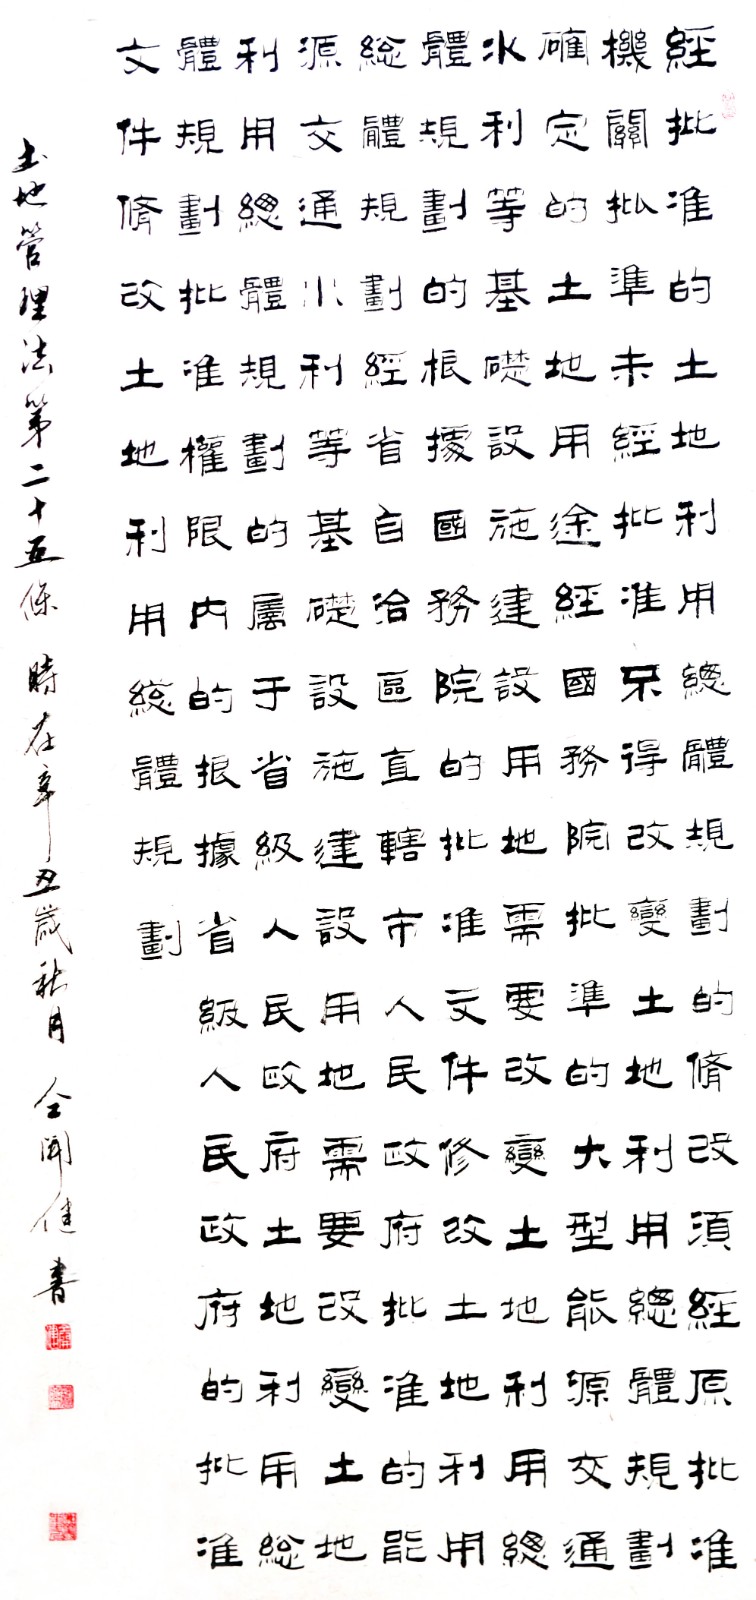 經批准的土地利用總體規劃的脩改須經原批准
機關批準未經批准不得改變土地利用總體規劃
確定的土地用途經國務院批準的大型能源交通
水利等基礎設施建設用地需要改變土地利用總
體規劃的根據國務院的批准文件修改土地利用
総體規劃經省自治區直轄市人民政府批准的能
源交通水利等基礎設施建設用地需要改變土地
利用總體規劃的屬于省級人民政府土地利用総
體規劃批准權限内的根據省級人民政府的批准
文件脩改土地利用総體規劃
土地管理法第二十五條 時在辛丑歲秋月 仝開健書